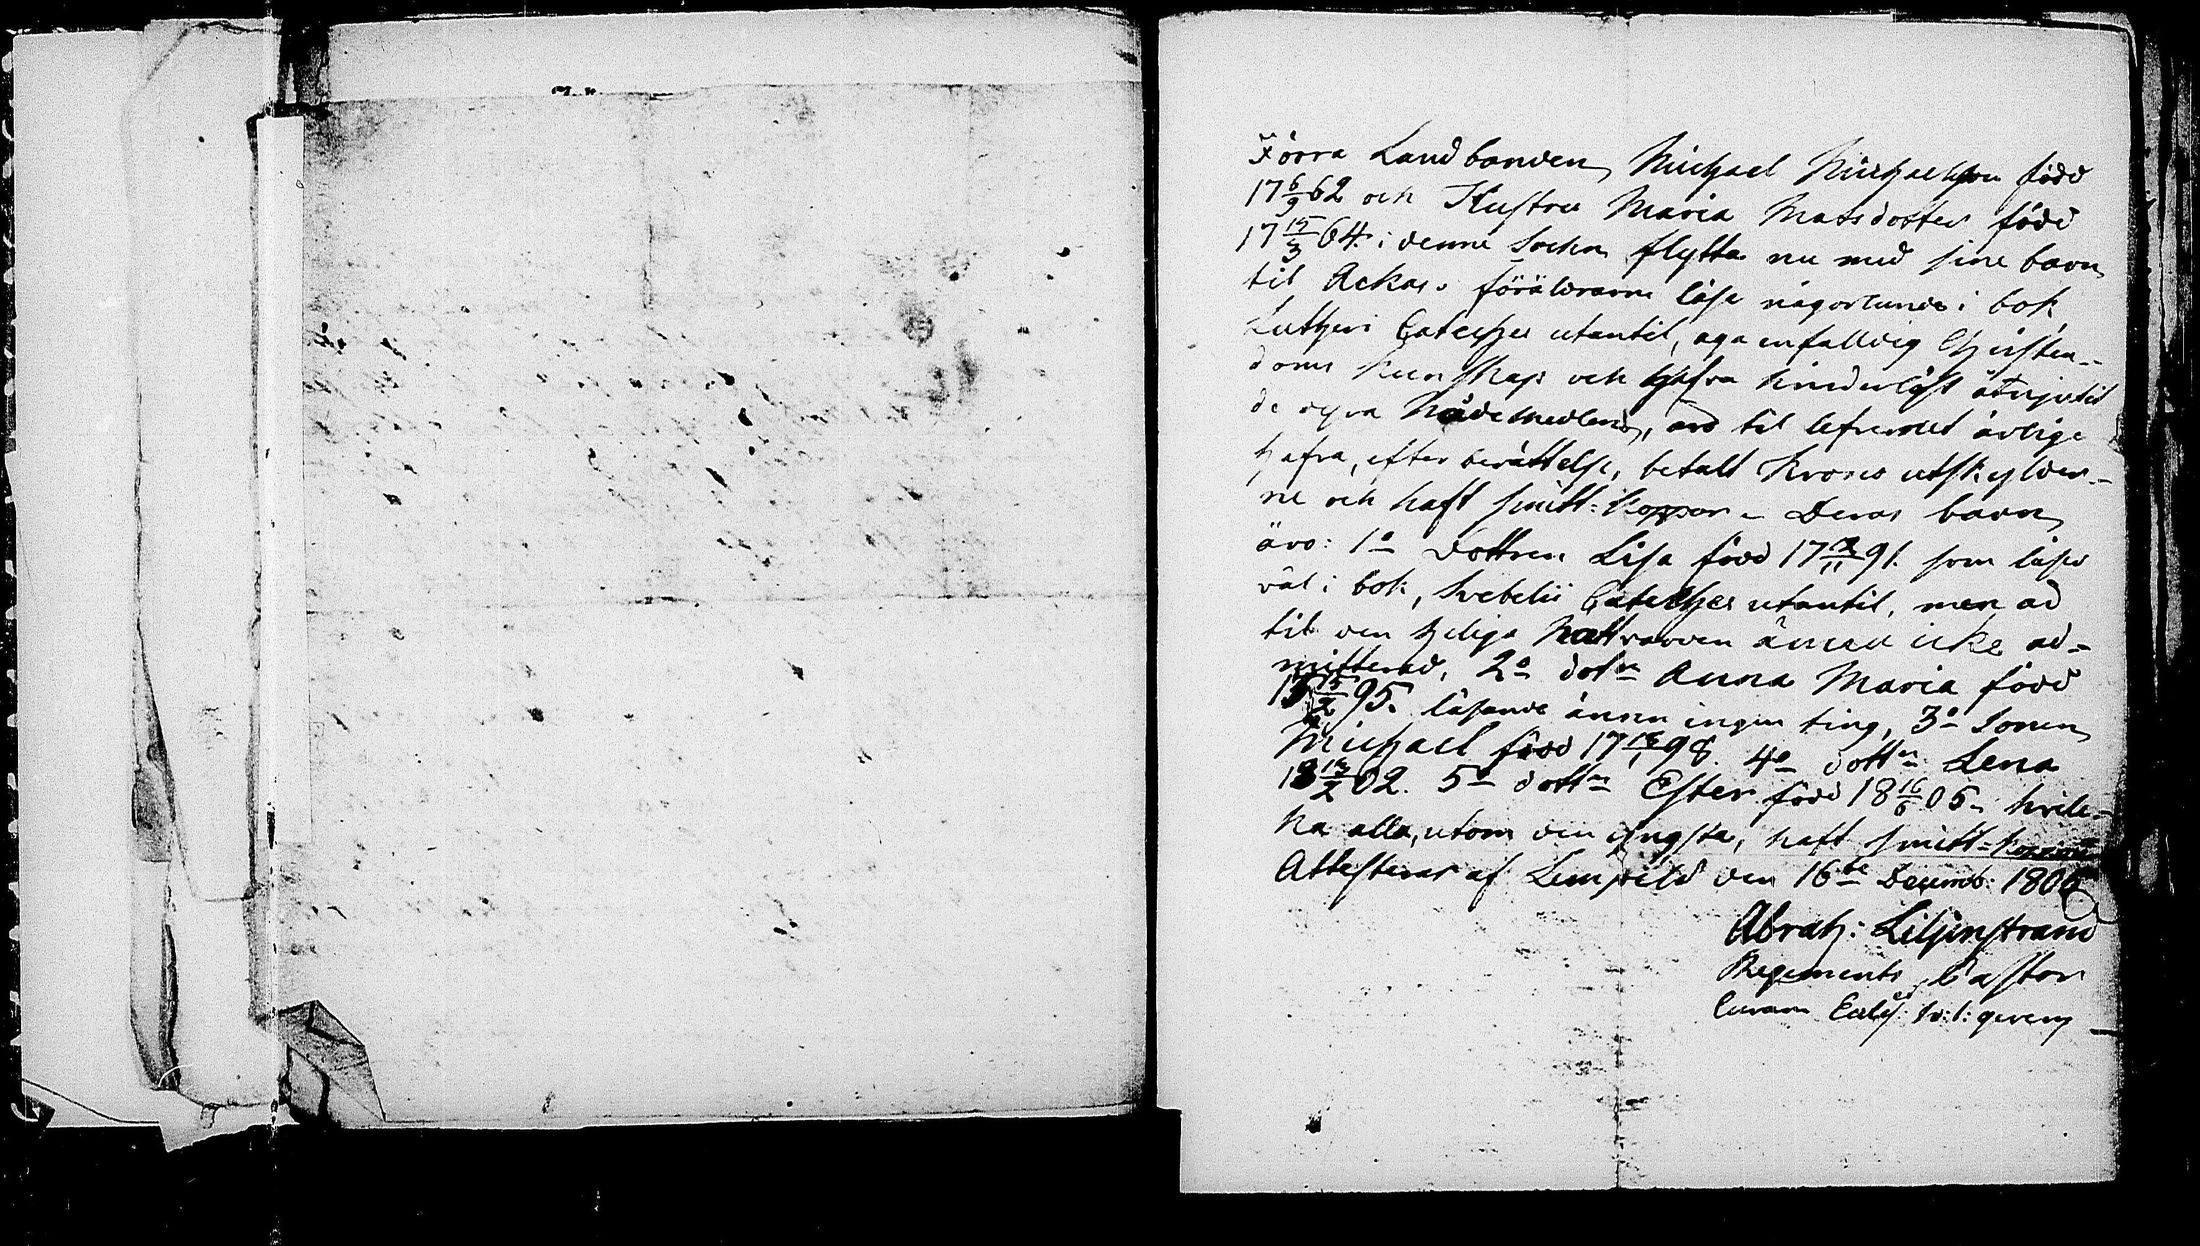 Förra Landbonden Michael Michaelsson född
17 6/9 62 och Hustru Maria Matsdotter född
17 15/3 64 i denne Sochn flytta nu med sine barn
til Ackas. föräldrarne läsa någorlunda i bok
Lutheri Cateches utantil, äga enfalldig Christen-
doms kunskap och hafva hinderlöst åtnjutit
de dyra Nådemedlen, äro til lefvernet ärlige
hafva, efter berättelse, betalt Krono utskylder-
ne och haft smitt-koppor. Deras barn
äro: 1o dottren Lisa född 91. som läser
väl i bok, Svebelii Cateches utantil, men ad
til den heliga Nattvarden ännu icke ad-
mitterad, 2o dotn Anna Maria född
17 15/2 95. läsande ännu ingen ting, 3o Sonen
Michael född 98. 4o dottn Lena
18 02. 5o dottn Ester född 18 16/6 05. hvil-
ka alla, utom den yngsta, haft smitt-koppor
Attesteras af Lempeld den 16de Decemb: 1806
Abrah: Liljenstrand
Regements Pastor
Curam Eccles: gerens